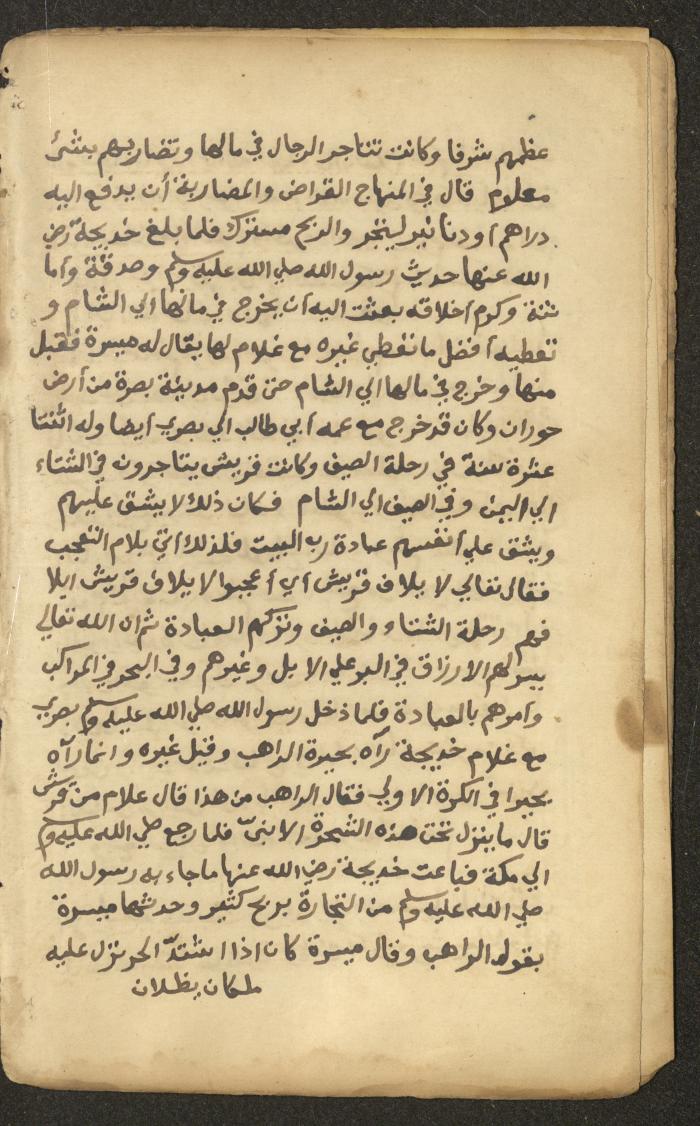 عظمهم شرفا وكانت تتاجر الرجال في مالها وتضاربهم بشئ
معلوم قال في المنهاج القراض والمضاربة أن يدفع اليه
دراهم أو دنانير ليتجر والربح مشترك فلما بلغ خديجة رضي
الله عنها حديث رسول الله صلي الله عليه وسلم وصدقة وأما
نتة وكرم أخلاقه بعثت اليه أن يخرج في مالها الي الشام و
تعطيه أفضل ما تعطي غيره مع غلام لها يقال له ميسرة فقبل
منها وخرج في مالها الي الشام حتي قدم مدينة بصرة من أرض
حوران وكان قد خرج مع عمه أبي طالب الي بصري أيضا وله اثنتا
عشرة سنة في رحلة الصيف وكانت قريش يتاجرون في الشتاء
الي اليمن وفي الصيف الي الشام فكان ذلك لا يشق عليهم
ويشق علي أنفسهم عبادة رب البيت فلذلك اتي بلام التعجب
فقال تعالي لا يلاف قريش أي أعجبوا لا يلاف قريش ايلا
فهم رحلة الشتاء والصيف وتركهم العبادة ثم ان الله تعالي
يسر لهم الارزاق في البر علي الابل وغيرهم وفي البحر في المراكب
وأمرهم بالعبادة فلما دخل رسول الله صلي الله عليه وسلم بصري
مع غلام خديجة رآه بحيرة الراهب وقيل غيره وانما رآه
بحيرا في الكرة الاولي فقال الراهب من هذا قال غلام من قريش
قال ما ينزل تحت هذه الشجرة الا نبيّ فلما رجع صلي الله عليه وسلم
الي مكة فباعت خديجة رضي الله عنها ما جاء به رسول الله
صلي الله عليه وسلم من التجارة بربح كثير وحدثها ميسرة
بقول الراهب وقال ميسرة كان اذا اشتدّ الحر نزل عليه
ملكان يظلان